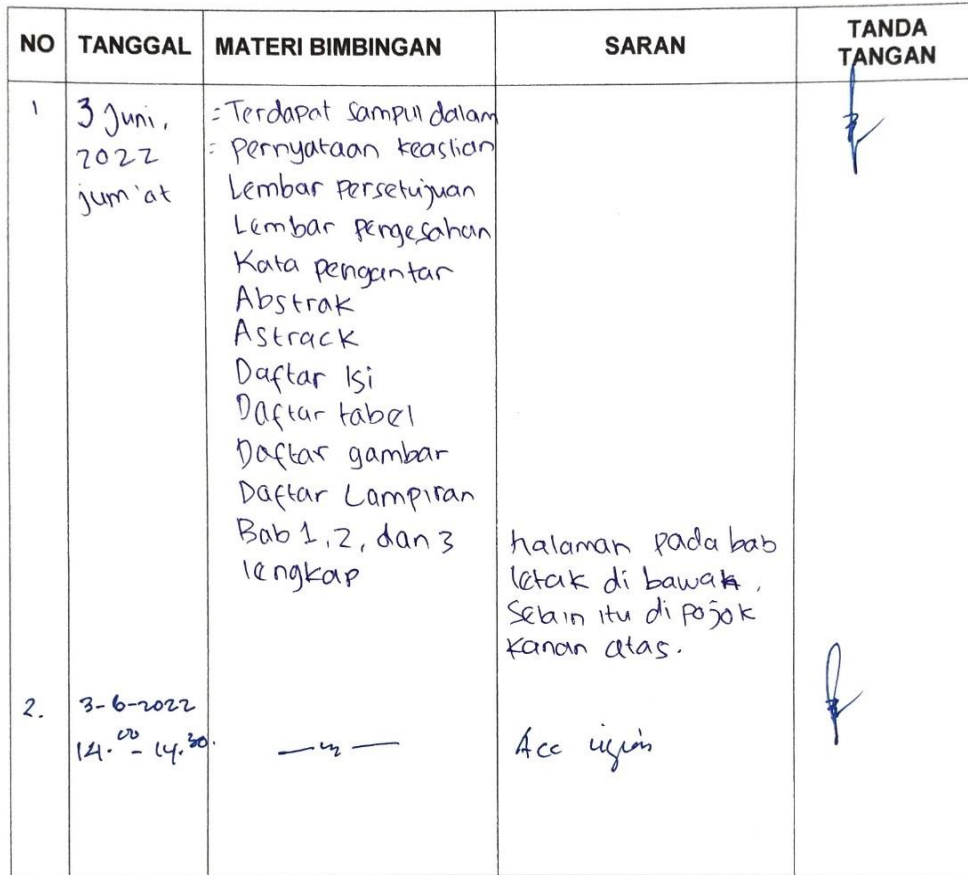 NO TANGGAL MATERI BIMBINGAN SARAN TANDA TANGAN
1 3 Juni, 2022 jum'at
= Terdapat Sampul dalam
= Pernyataan keaslian
Lembar Persetujuan
Lembar Pengesahan
Kata pengantar
Abstrak
Astrack
Daftar Isi
Daftar tabel
Daftar gambar
Daftar Lampiran
Bab 1, 2, dan 3
lengkap
halaman pada bab
letak di bawah,
Selain itu di pojok
kanan atas.
2. 3-6-2022
14.00 - 14.30.
Acc